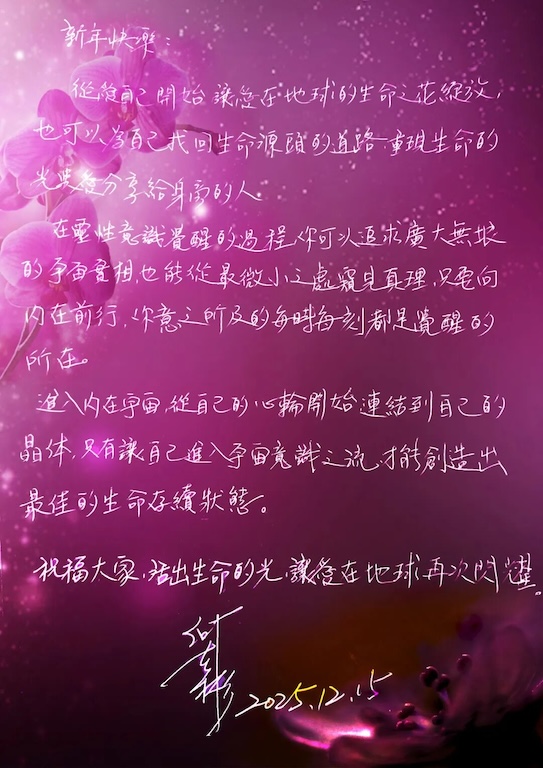 新年快樂：
從愛自己開始讓愛在地球的生命之花綻放，
也可以為自己找回生命源頭的道路重現生命的
光與愛分享給身旁的人
在靈性意識覺醒的過程你可以追求廣大無垠
的宇宙實相,也能從最微小之處窺見真理,只要向
內在前行,你意之所及的每時每刻都是覺醒的
所在。
進入內在宇宙,從自己的心輪開始連結到自己的
晶体,只有讓自己進入宇宙意識之流,才能創造出
最佳的生命存續狀態。
祝福大家,活出生命的光,讓愛在地球再次閃耀。
2025.12.15